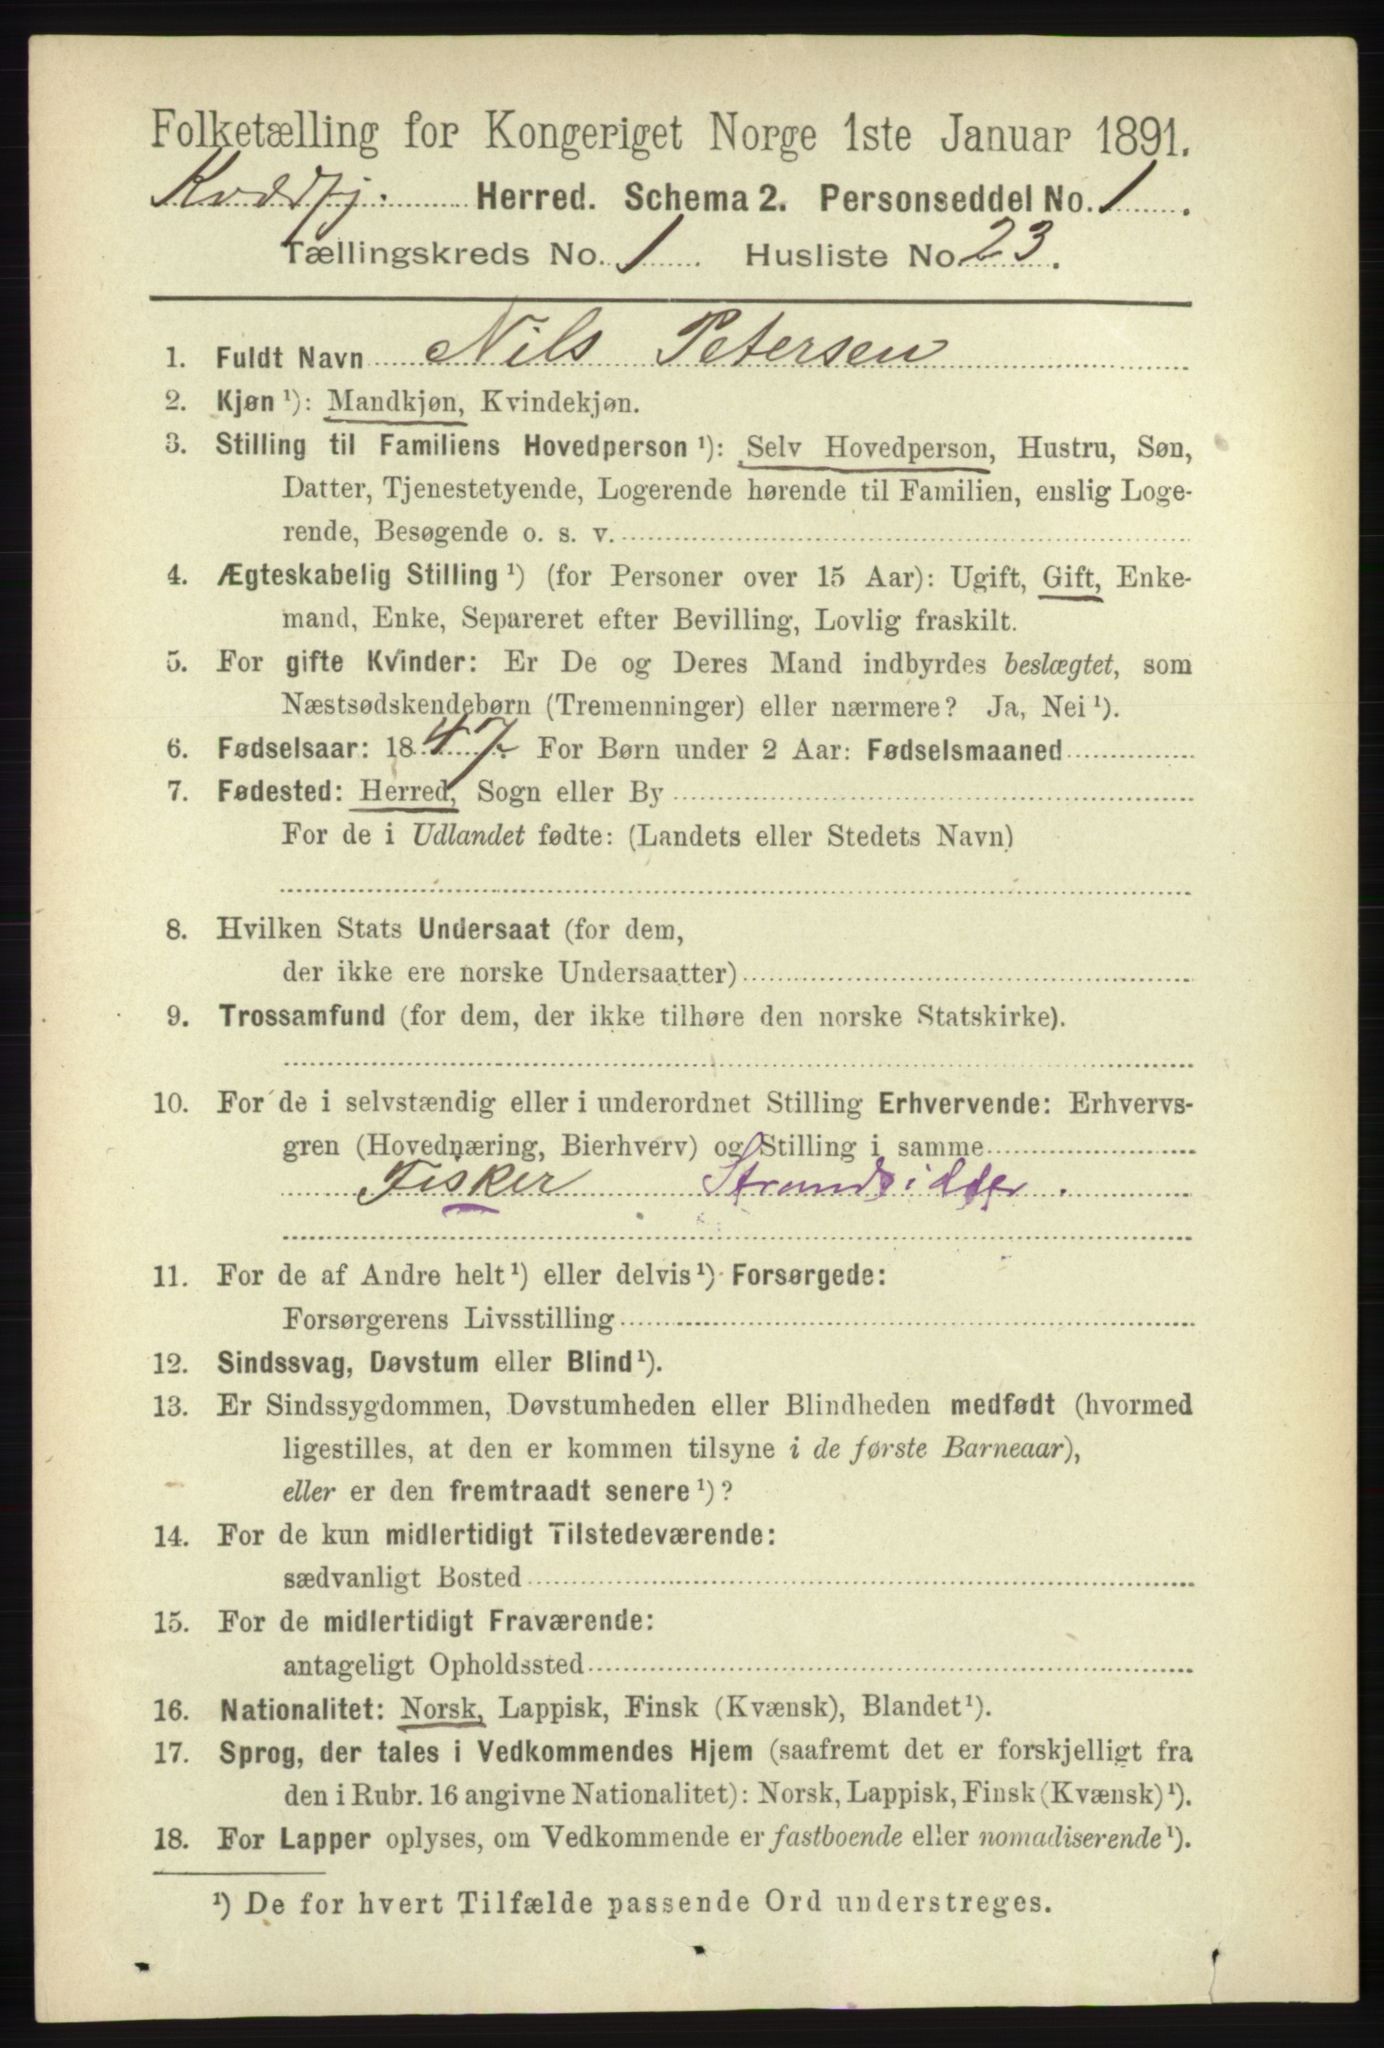 Folketælling for Kongeriget Norge 1ste Januar 1891.
Kvædfj. Herred. Schema 2. Personseddel No. 1.
Tællingskreds No. 1. Husliste No. 23.
1. Fuldt Navn Nils Petersen
2. Kjøn ¹): Mandkjøn, Kvindekjøn.
3. Stilling til Familiens Hovedperson ¹): Selv Hovedperson, Hustru, Søn,
Datter, Tjenestetyende, Logerende hørende til Familien, enslig Loge-
rende, Besøgende o. s. v.
4. Ægteskabelig Stilling ¹) (for Personer over 15 Aar): Ugift, Gift, Enke-
mand, Enke, Separeret efter Bevilling, Lovlig fraskilt.
5. For gifte Kvinder: Er De og Deres Mand indbyrdes beslægtet, som
Næstsødskendebørn (Tremenninger) eller nærmere? Ja, Nei ¹).
6. Fødselsaar: 1847. For Børn under 2 Aar: Fødselsmaaned
7. Fødested: Herred, Sogn eller By
For de i Udlandet fødte: (Landets eller Stedets Navn)
8. Hvilken Stats Undersaat (for dem,
der ikke ere norske Undersaatter)
9. Trossamfund (for dem, der ikke tilhøre den norske Statskirke).
10. For de i selvstændig eller i underordnet Stilling Erhvervende: Erhvervs-
gren (Hovednæring, Bierhverv) og Stilling i samme
Fisker Strandsidder.
11. For de af Andre helt ¹) eller delvis ¹) Forsørgede:
Forsørgerens Livsstilling
12. Sindssvag, Døvstum eller Blind ¹).
13. Er Sindssygdommen, Døvstumheden eller Blindheden medfødt (hvormed
ligestilles, at den er kommen tilsyne i de første Barneaar),
eller er den fremtraadt senere ¹)?
14. For de kun midlertidigt Tilstedeværende:
sædvanligt Bosted
15. For de midlertidigt Fraværende:
antageligt Opholdssted
16. Nationalitet: Norsk, Lappisk, Finsk (Kvænsk), Blandet ¹).
17. Sprog, der tales i Vedkommendes Hjem (saafremt det er forskjelligt fra
den i Rubr. 16 angivne Nationalitet): Norsk, Lappisk, Finsk (Kvænsk) ¹).
18. For Lapper oplyses, om Vedkommende er fastboende eller nomadiserende ¹).
¹) De for hvert Tilfælde passende Ord understreges.